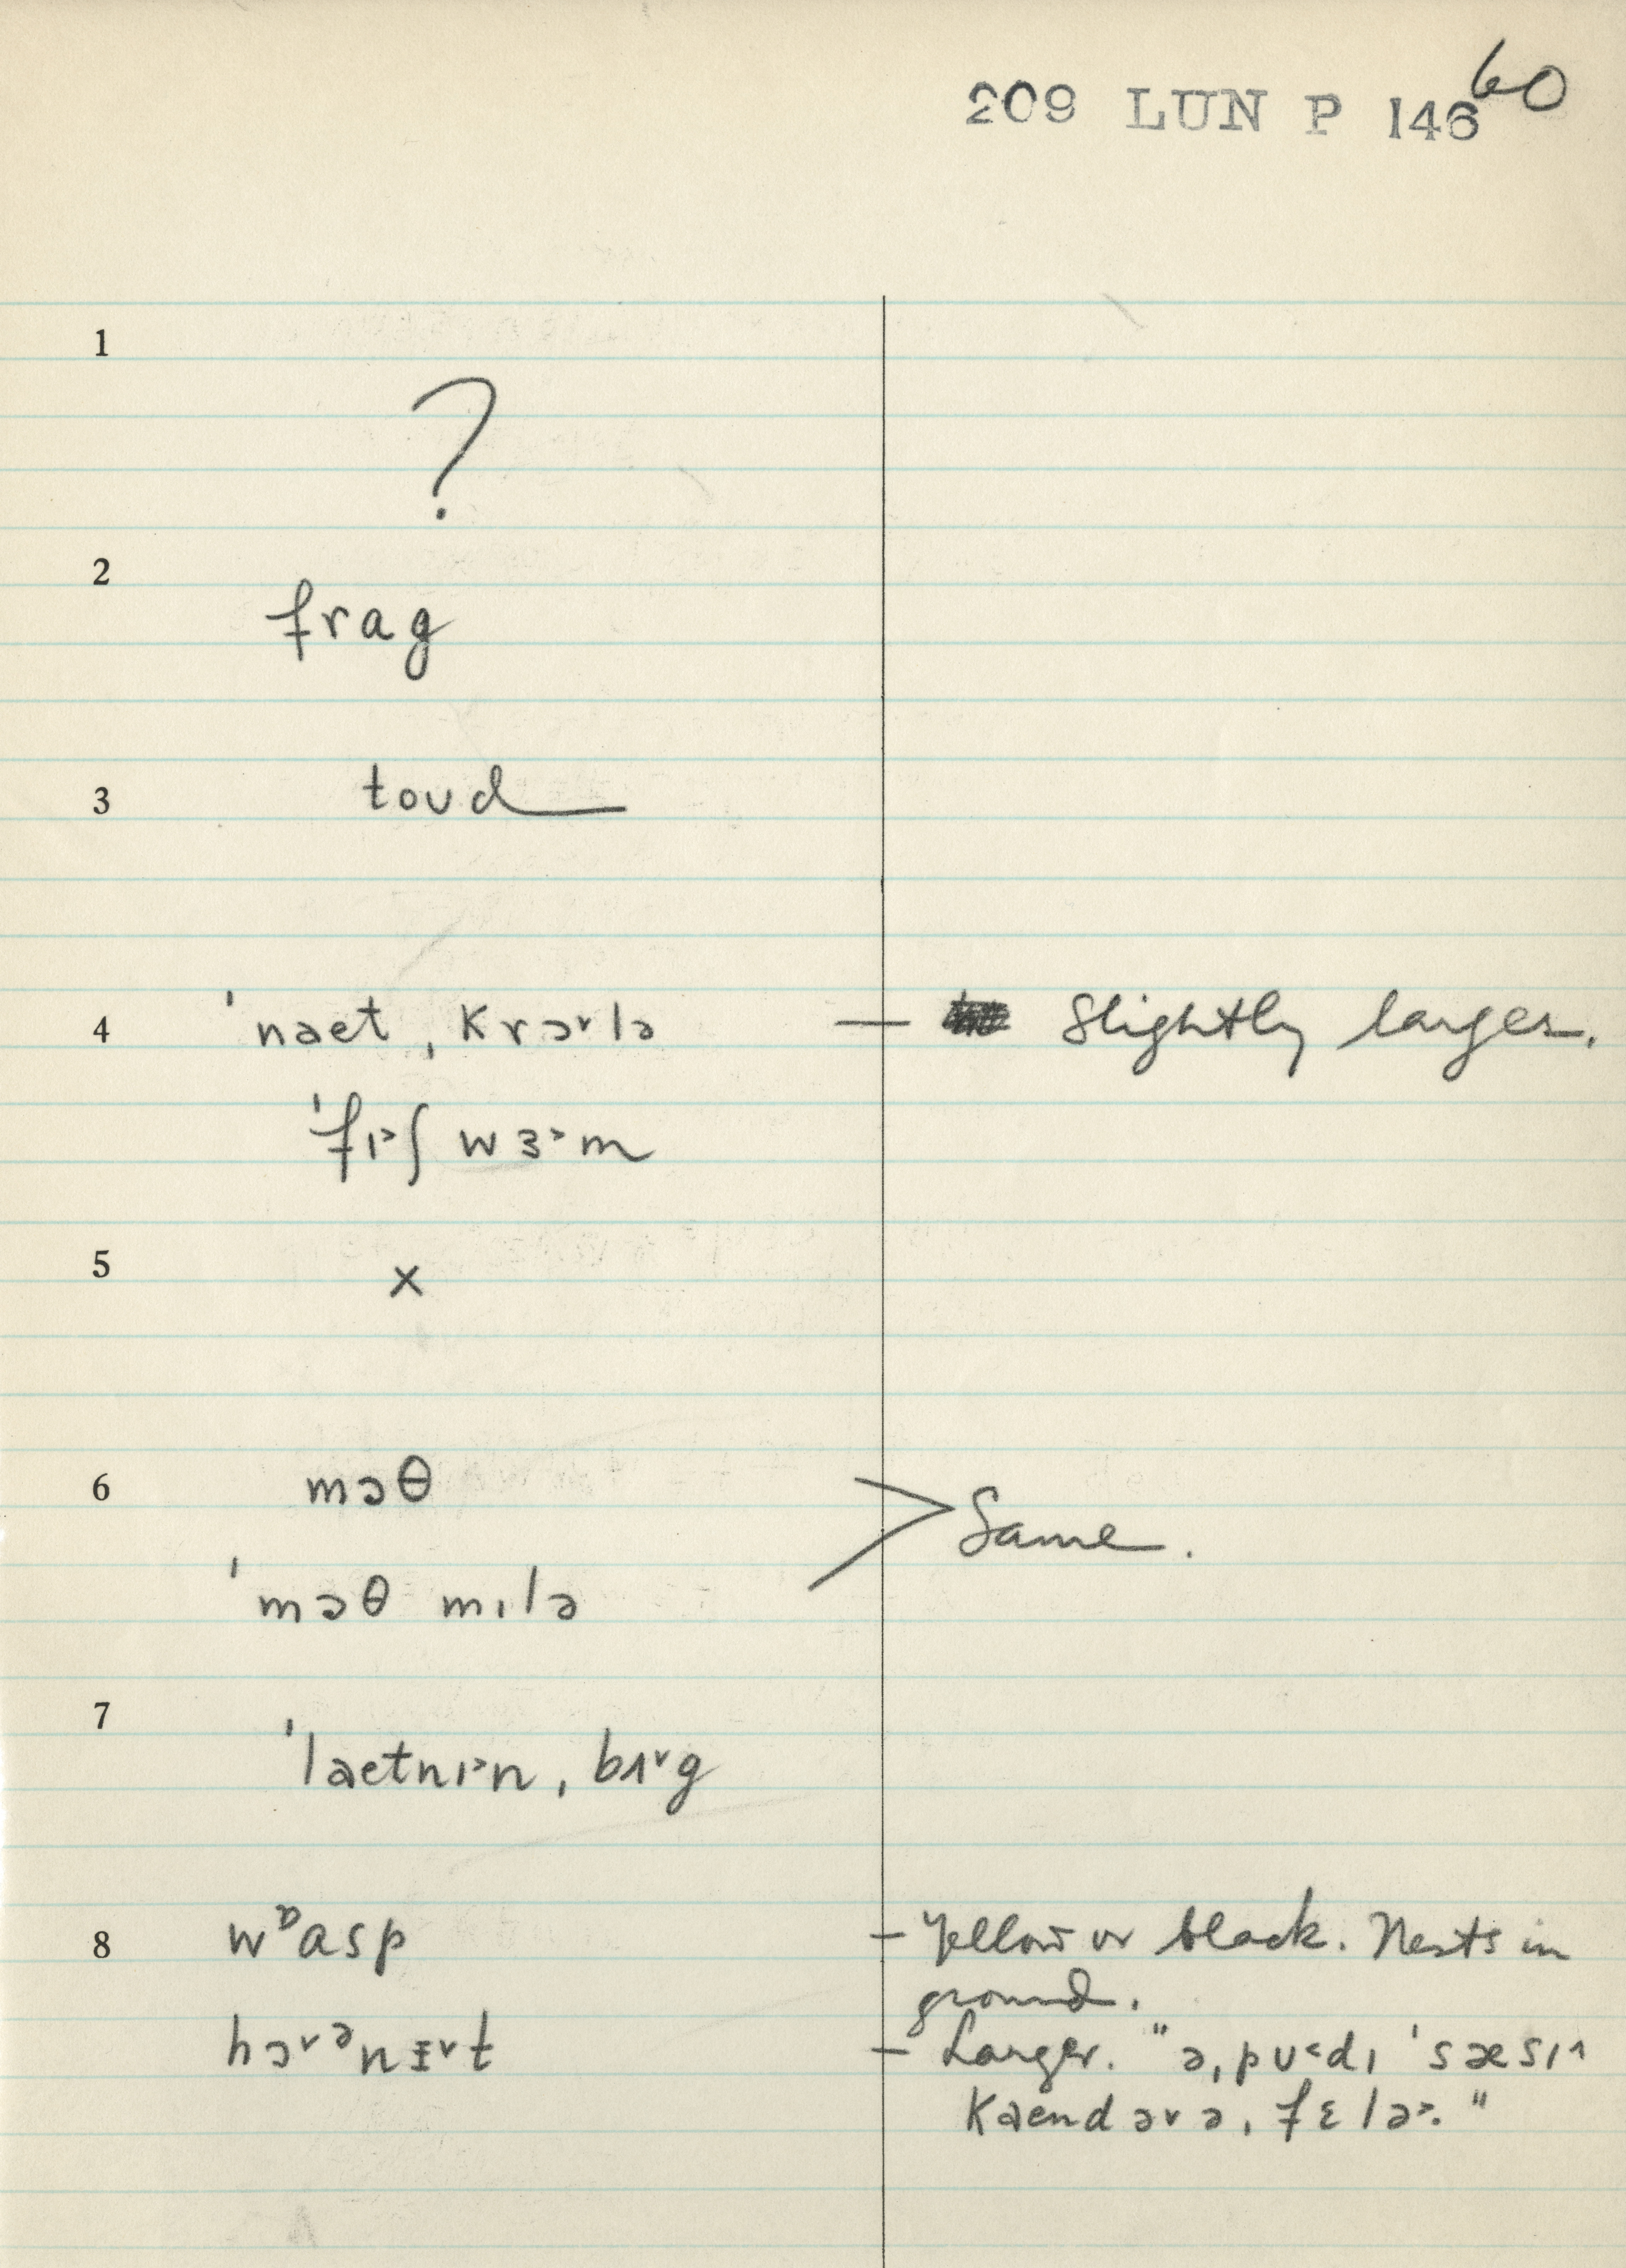 60
209 LUN P 146
1
?
2 frag
3 toʊd
4 ˈnaet ˌkrɔ˅lə — Slightly larger.
ˈfɪ˃ʃ wɜ˃m
5 ×
6 mɔθ
> Same.
ˈmɔθ mɪlə
7 ˈlaetnɪ˃nˌbʌ˅g
8 wᶛasp – Yellow or black. Nests in
ground.
hɔ˅ᵊnɪ˅t – Larger. "əˌpʊ˂dɪ ˈsæsɪ˄
kaend ə˅ əˌfɛlə˃."